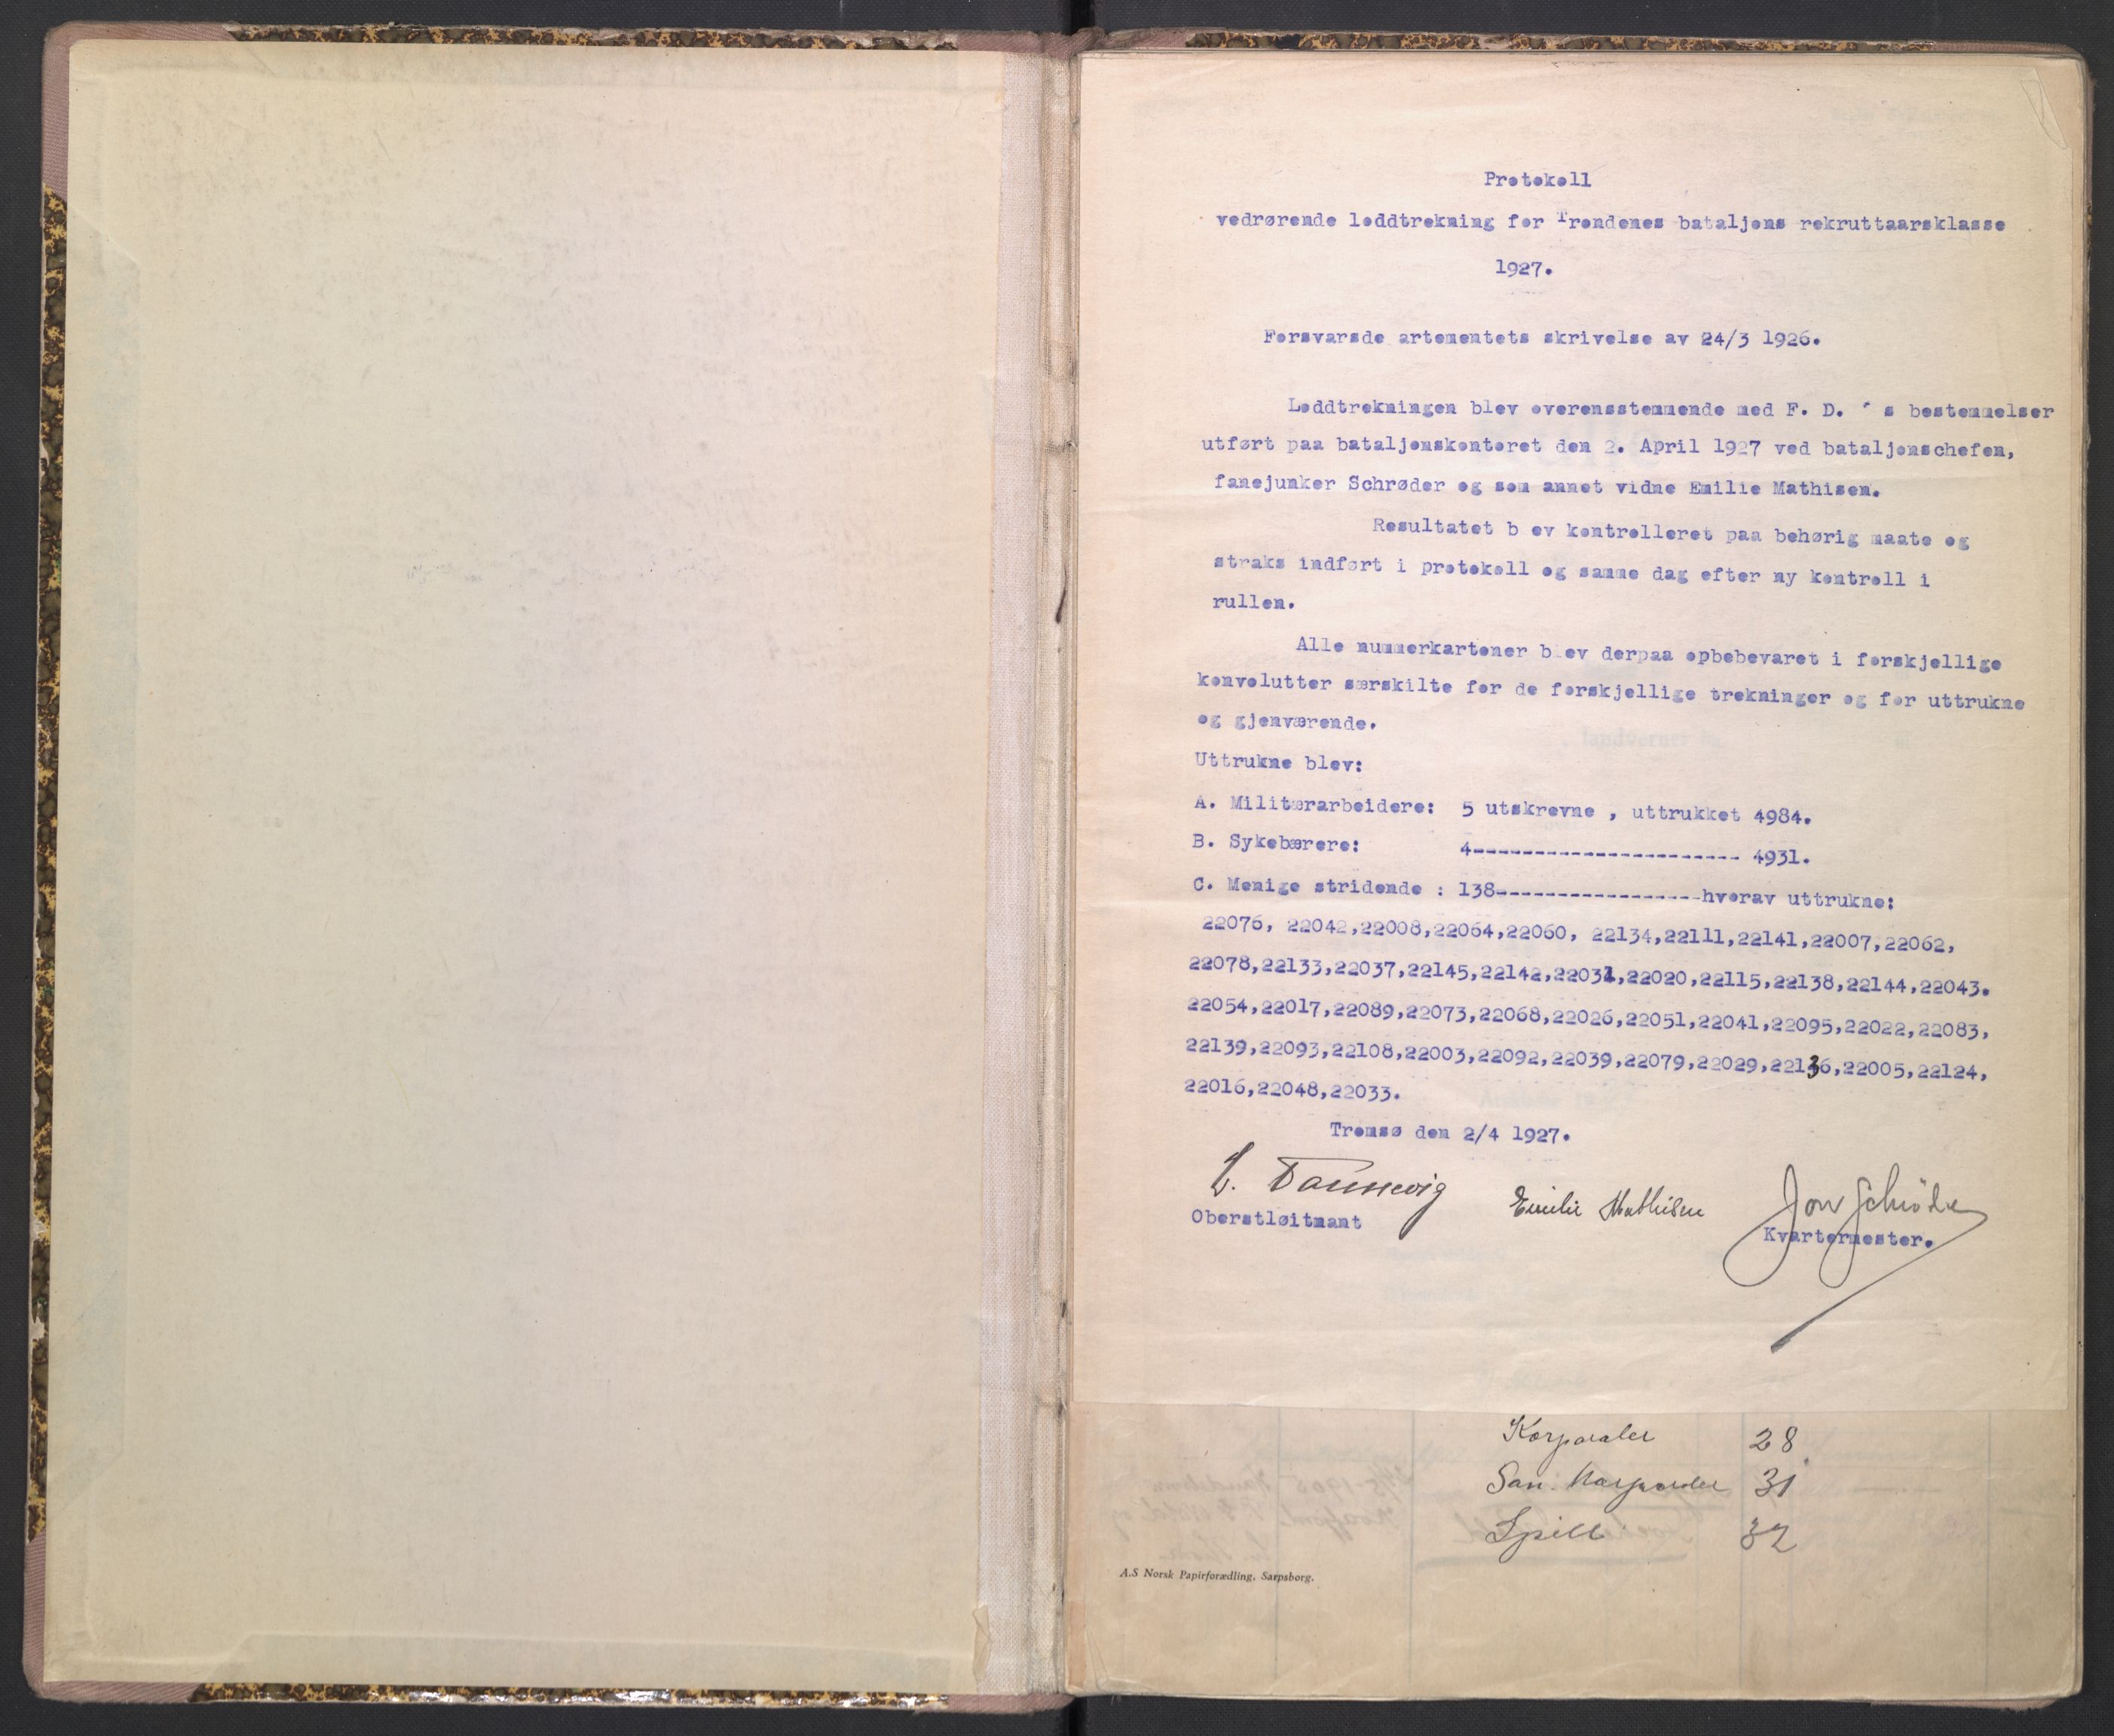 Protokoll
vedrørende loddtrekning for Trondenes bataljons rekruttaarsklasse
1927.
Forsvarsde artementets skrivelse av 24/3 1926.
Loddtrekningen blev overensstemmende med F. D. ´ s bestemmelser
utført paa bataljonskontoret den 2. April 1927 ved bataljonschefen,
fanejunker Schrøder og som annet vidne Emilie Mathisen.
Resultatet b ev kontrolleret paa behørig maate og
straks indført i protokoll og samme dag efter ny kontroll i
rullen.
Alle nummerkartoner blev derpaa opbebevaret i forskjellige
konvolutter særskilte for de forskjellige trekninger og for uttrukne
og gjenværende.
Uttrukne blev:
A. Militærarbeidere: 5 utskrevne , uttrukket 4984.
B. Sykebærere: 4---------------------- 4931.
C. Menige stridende : 138-----------------hvorav uttrukne:
22076, 22042,22008,22064,22060, 22134,22111,22141,22007,22062,
22078,22133,22037,22145,22142,22031,22020,22115,22138,22144,22043.
22054,22017,22089,22073,22068,22026,22051,22041,22095,22022,22083,
22139,22093,22108,22003,22092,22039,22079,22029,22136,22005,22124,
22016,22048,22033.
Tromsø den 2/4 1927.
Dannevig Emilie Mathisen Jon Schrøder
Oberstløitnant Kvartermester.
Korporaler 28
San. Korporaler 31
Spill 32
A.S Norsk Papirforædling, Sarpsborg.